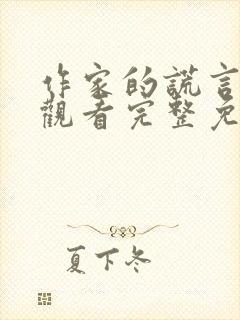 作家的謊言
觀看完整免
夏下冬